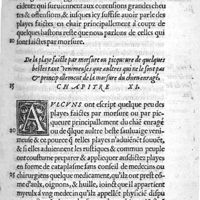 eidet: qui suruienent aux contusions grandes cheu
tes & offensions, & iusques icy suffise auoir parle des
playes faictes, en chair principalement a coupe de
quelques bastons reste que nous parlons de celles qui
sont faictes par morsure.
De la playe faicte par morsure ou picqueure de quelques
bestes tant venimeuses que aultres qui ne le sont pas
& principallement de la morsure du chien enragé.
CHAPITRE XI.
AVLCVNS ont escript quelque peu des
playes faictes par morsure ou par pic
queure principallement du chié enragé
ou de qlque aultre beste saulvaige veni
meuse, & ce pourtant qu'elles aduienēt souuēt,
& si elles aduiennent les rustiques & commun peuple
ont coustume de appliquer aux playes estranges en
forme de cataplasme sans conseil de medecins ou
chirurgiens quelque medicament, qu'ilz ont prest cō
me d'aulx, oignons, & huille, ioinct que il appartient
myeulx a vng medecin qu'est appellé phyisicié dispu